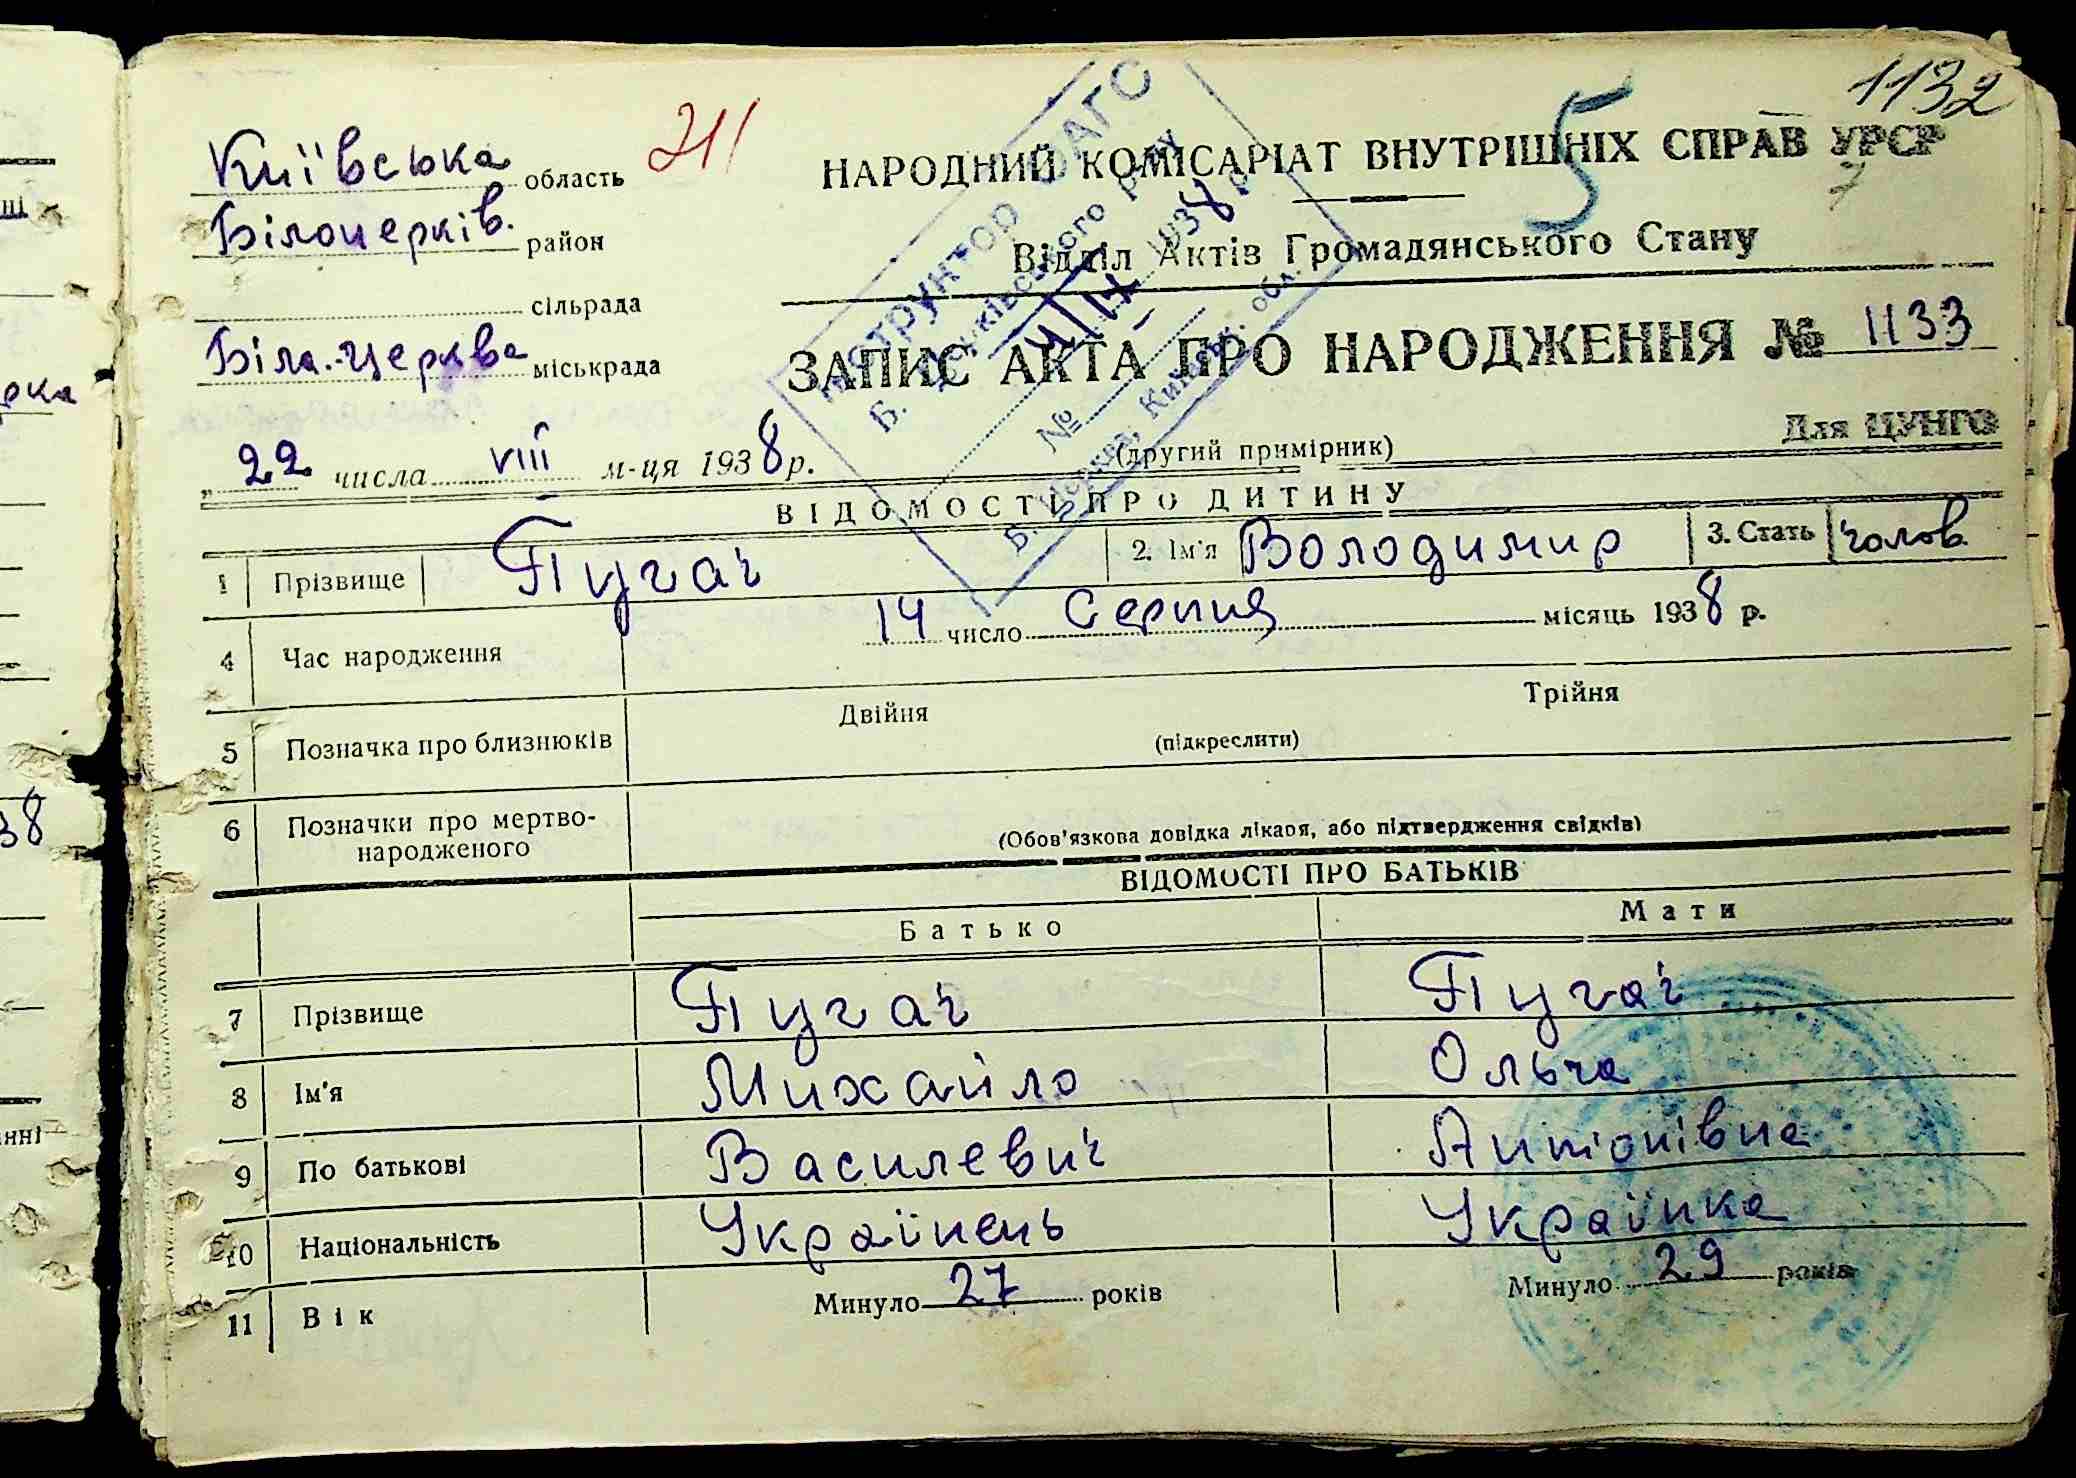 1132
Київська область
211
НАРОДНИЙ КОМІСАРІАТ ВНУТРІШНІХ СПРАВ УРСР
5
7
Білоцерків. район
Відділ Актів Громадянського Стану
сільрада
Біла-Церква міськрада
ЗАПИС АКТА ПРО НАРОДЖЕННЯ № 1133
Для ЦУНГО
(другий примірник)
„ 22 числа VIII м-ця 1938 р.
ВІДОМОСТІ ПРО ДИТИНУ
1 Прізвище Пугач 2. Ім'я Володимир 3. Стать чолов.
4 Час народження 14 число Серпня місяць 1938 р.
5 Позначка про близнюків Двійня Трійня
(підкреслити)
6 Позначки про мертво-
народженого
(Обов'язкова довідка лікаря, або підтвердження свідків)
ВІДОМОСТІ ПРО БАТЬКІВ
Батько Мати
7 Прізвище Пугач Пугач
8 Ім'я Михайло Ольга
9 По батькові Василевич Антонівна
10 Національність Українець Українка
11 Вік Минуло 27 років Минуло 29 років